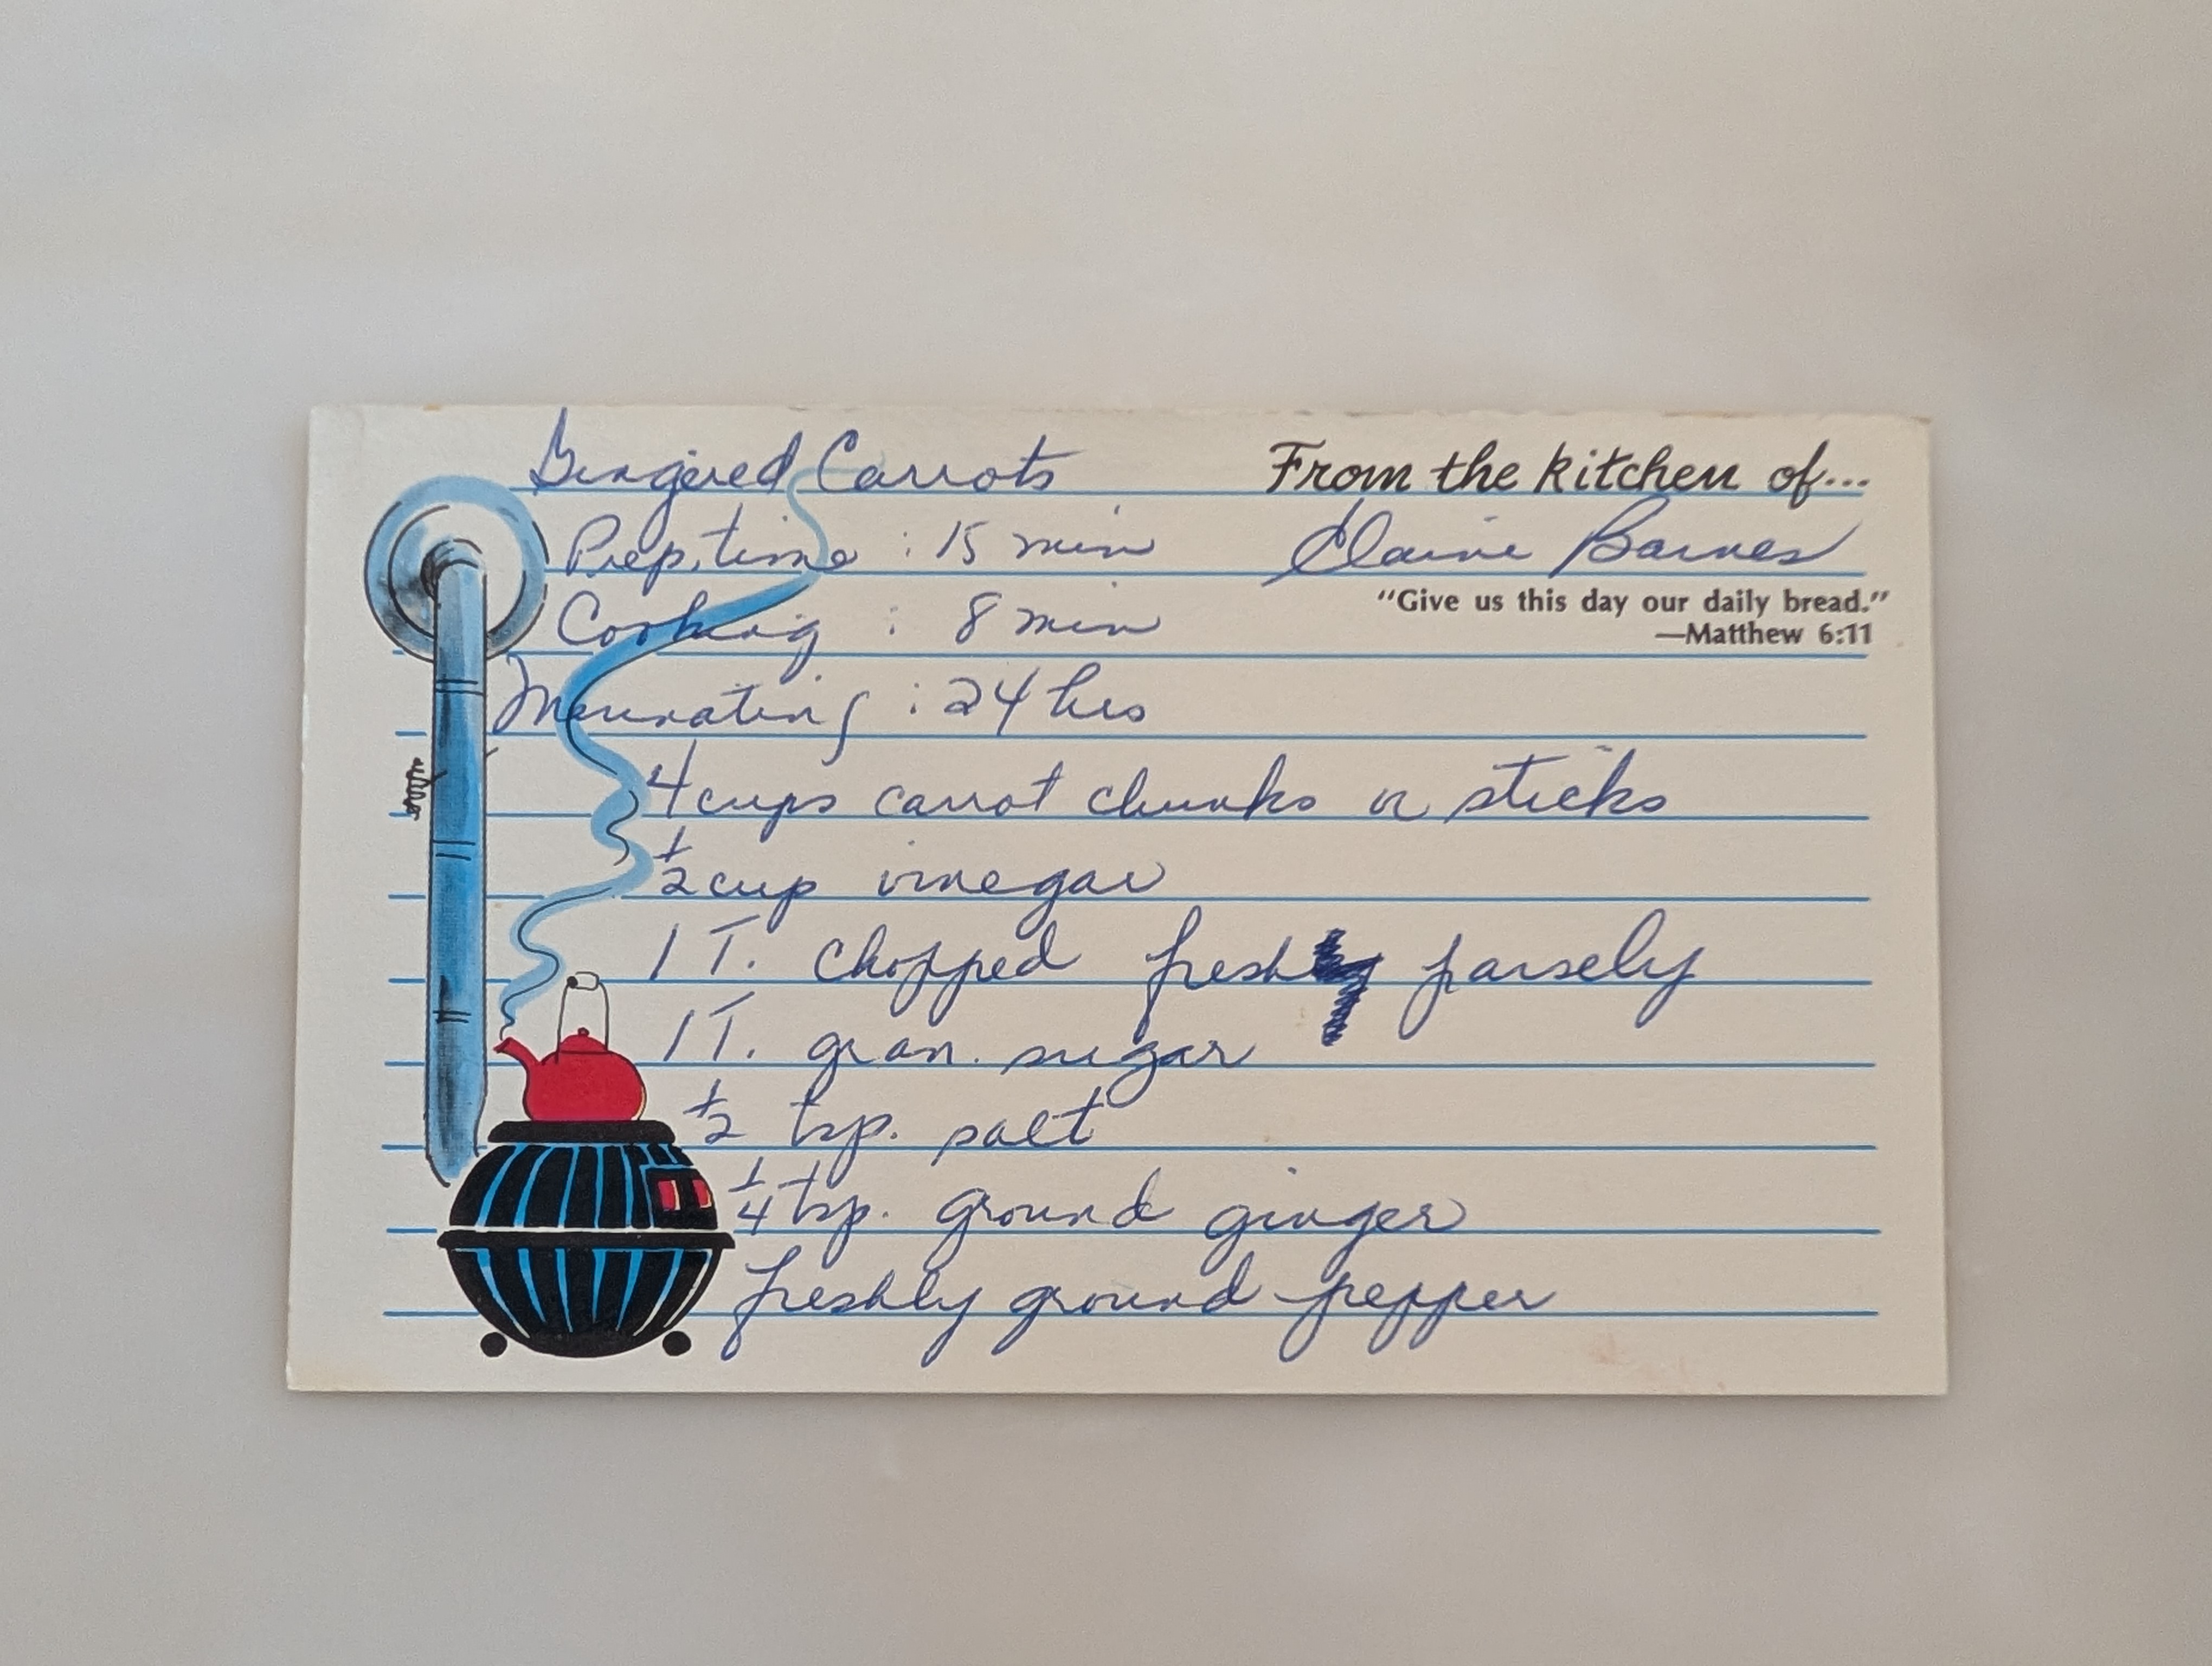 Gingered Carrots
From the kitchen of...
Prep. time : 15 min
Elaine Barnes
"Give us this day our daily bread."
—Matthew 6:11
Cooking : 8 min
Marinating : 24 hrs
4 cups carrot chunks or sticks
1/2 cup vinegar
1 T. chopped fresh parsely
1 T. gran. sugar
1/2 tsp. salt
1/4 tsp. ground ginger
freshly ground pepper